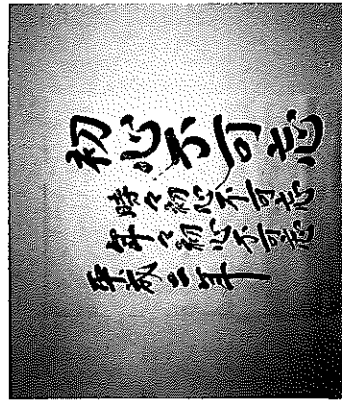 初心不可忘
時々初心不可忘
年々初心不可忘
平成三年